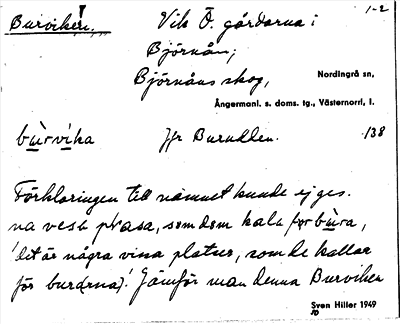 Burviken, Vik Ö. gårdarna i 1-2
Björnån;
Björnåns skog, Nordingrå sn,
Ångermanl. s. doms. tg., Västernorrl. l.
bùrvika Jfr Burudden. 138
Förklaringen till namnet kunde ej ges.
na vesə plasa, som dom kalɩ for bùra,
'det är några vissa platser, som de kallar
för burarna'. Jämför man denna Burviken
Sven Hiller 1949